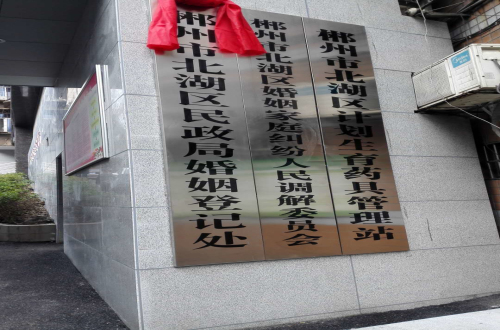 郴州市北湖区民政局婚姻登记处
郴州市北湖区婚姻家庭纠纷人民调解委员会
郴州市北湖区计划生育药具管理站